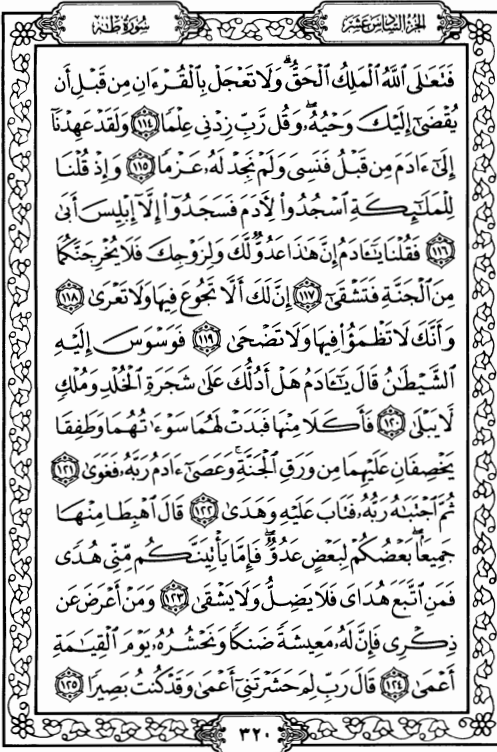 الجزء السادس عشر
سورة طه
فَتَعَٰلَى ٱللَّهُ ٱلْمَلِكُ ٱلْحَقُّۗ وَلَا تَعْجَلْ بِٱلْقُرْءَانِ مِن قَبْلِ أَن
يُقْضَىٰٓ إِلَيْكَ وَحْيُهُۥۖ وَقُل رَّبِّ زِدْنِى عِلْمًا ١١٤ وَلَقَدْ عَهِدْنَآ
إِلَىٰٓ ءَادَمَ مِن قَبْلُ فَنَسِىَ وَلَمْ نَجِدْ لَهُۥ عَزْمًا ١١٥ وَإِذْ قُلْنَا
لِلْمَلَٰٓئِكَةِ ٱسْجُدُوا۟ لِءَادَمَ فَسَجَدُوٓا۟ إِلَّآ إِبْلِيسَ أَبَىٰ
١١٦ فَقُلْنَا يَٰٓـَٔادَمُ إِنَّ هَٰذَا عَدُوٌّ لَّكَ وَلِزَوْجِكَ فَلَا يُخْرِجَنَّكُمَا
مِنَ ٱلْجَنَّةِ فَتَشْقَىٰٓ ١١٧ إِنَّ لَكَ أَلَّا تَجُوعَ فِيهَا وَلَا تَعْرَىٰ ١١٨
وَأَنَّكَ لَا تَظْمَؤُا۟ فِيهَا وَلَا تَضْحَىٰ ١١٩ فَوَسْوَسَ إِلَيْهِ
ٱلشَّيْطَٰنُ قَالَ يَٰٓـَٔادَمُ هَلْ أَدُلُّكَ عَلَىٰ شَجَرَةِ ٱلْخُلْدِ وَمُلْكٍ
لَّا يَبْلَىٰ ١٢٠ فَأَكَلَا مِنْهَا فَبَدَتْ لَهُمَا سَوْءَٰتُهُمَا وَطَفِقَا
يَخْصِفَانِ عَلَيْهِمَا مِن وَرَقِ ٱلْجَنَّةِۚ وَعَصَىٰٓ ءَادَمُ رَبَّهُۥ فَغَوَىٰ ١٢١
ثُمَّ ٱجْتَبَٰهُ رَبُّهُۥ فَتَابَ عَلَيْهِ وَهَدَىٰ ١٢٢ قَالَ ٱهْبِطَا مِنْهَا
جَمِيعًۢاۖ بَعْضُكُمْ لِبَعْضٍ عَدُوٌّۖ فَإِمَّا يَأْتِيَنَّكُم مِّنِّى هُدًى
فَمَنِ ٱتَّبَعَ هُدَاىَ فَلَا يَضِلُّ وَلَا يَشْقَىٰ ١٢٣ وَمَنْ أَعْرَضَ عَن
ذِكْرِى فَإِنَّ لَهُۥ مَعِيشَةً ضَنكًا وَنَحْشُرُهُۥ يَوْمَ ٱلْقِيَٰمَةِ
أَعْمَىٰ ١٢٤ قَالَ رَبِّ لِمَ حَشَرْتَنِىٓ أَعْمَىٰ وَقَدْ كُنتُ بَصِيرًا ١٢٥
٣٢٠